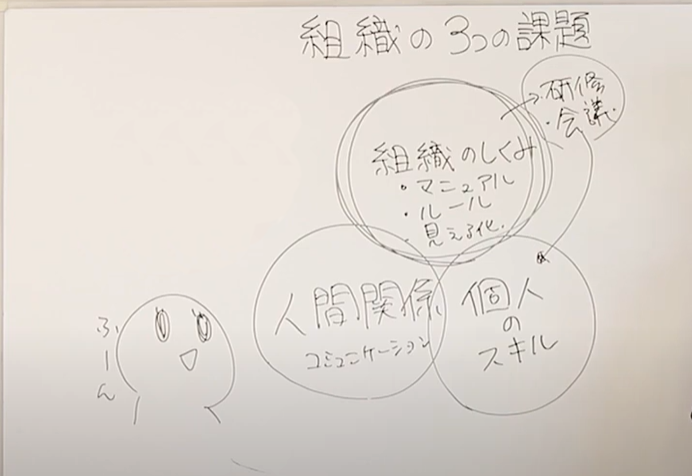 組織の3つの課題
研修
・会議
組織のしくみ
・マニュアル
・ルール
・見える化
人間関係
コミュニケーション
個人
の
スキル
ふーん